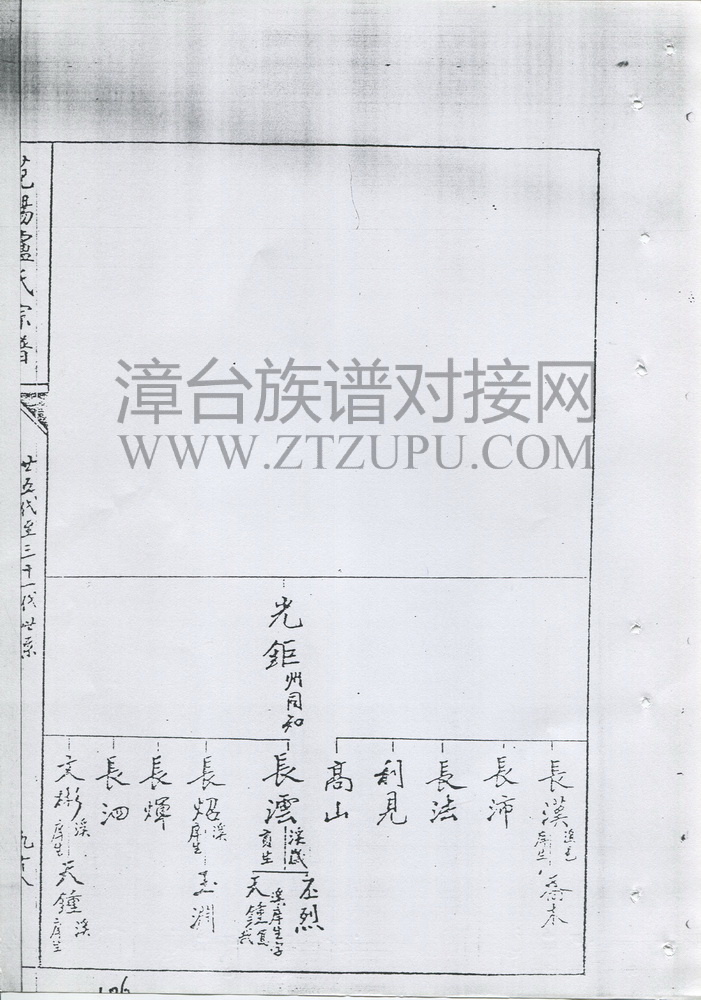 范陽盧氏宗譜
廿五代至三十一代世系
漳台族谱对接网
WWW.ZTZUPU.COM
光鉅 州同知
長漢
庠生
長沛
長法
利見
高山
長澐
貢生
丕烈
天鐘
庠生
長炤
庠生
長煇
長泗
文彬
庠生
天鍾
庠生